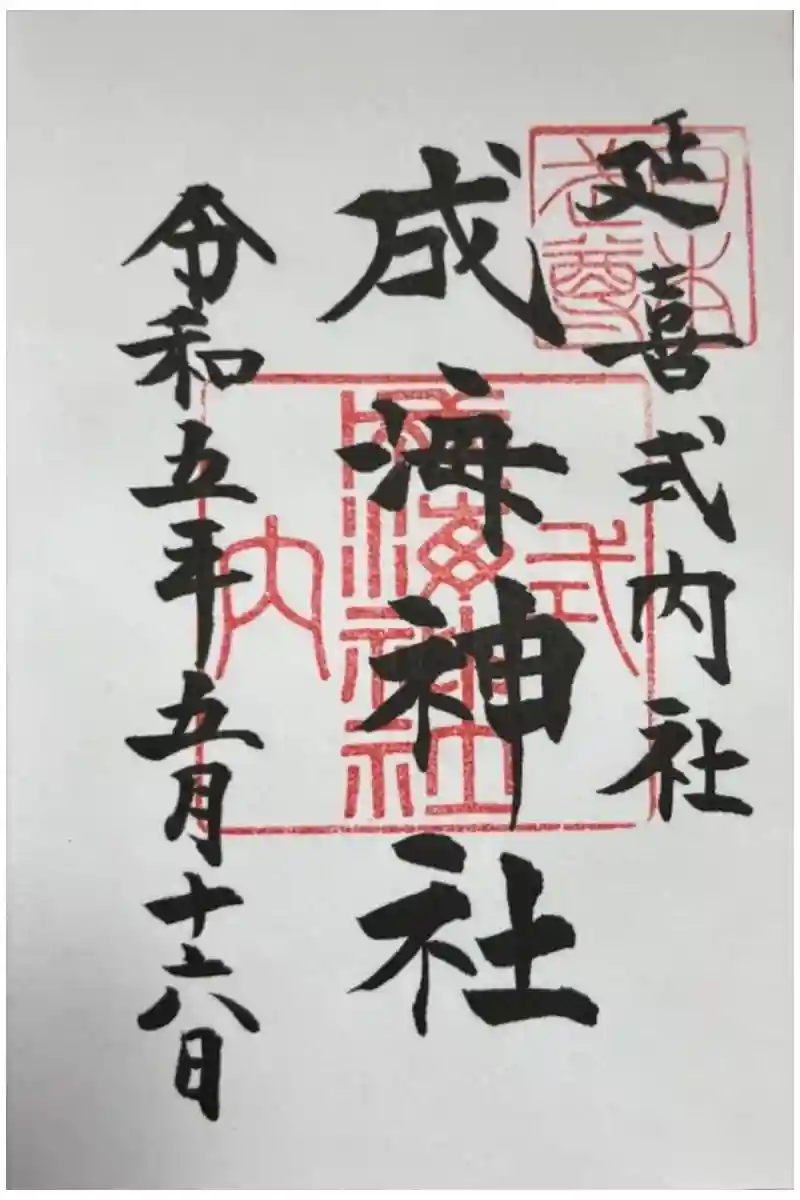 延喜式内社
成海神社
令和五年五月十六日
式
内